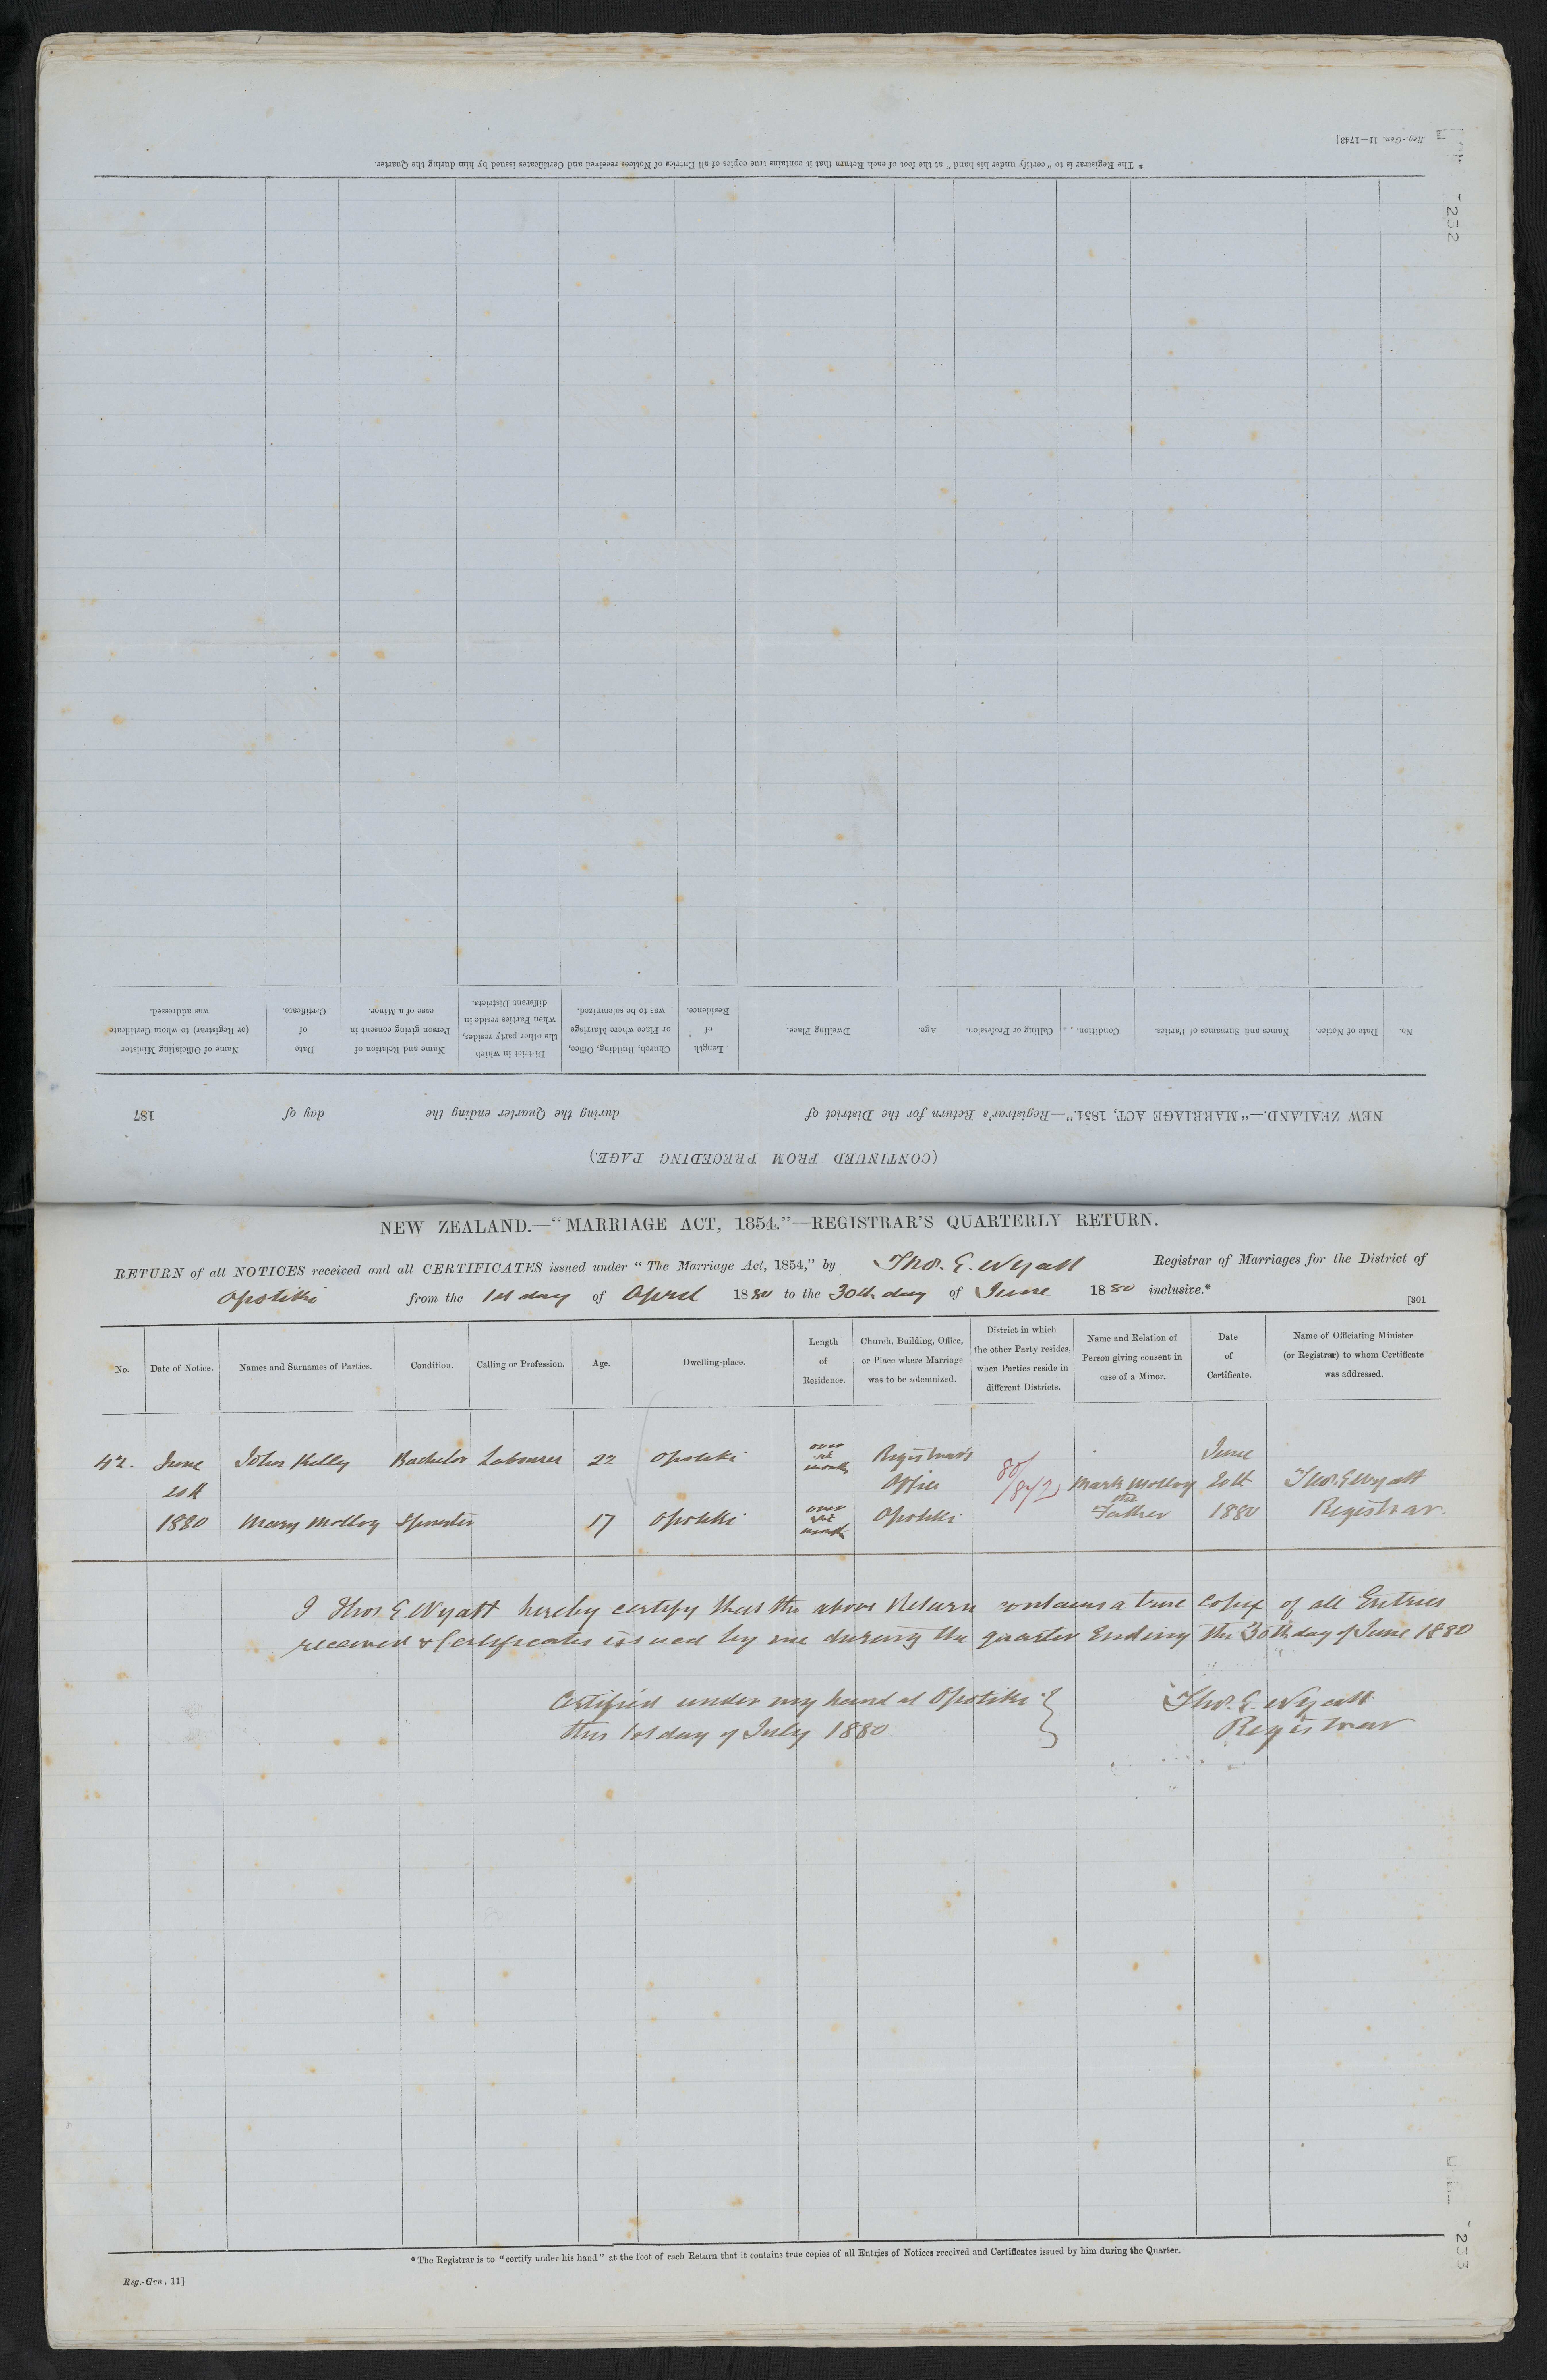 Reg.-Gen. 11—1743]
* The Registrar is to "certify under his hand" at the foot of each Return that it contains true copies of all Entries of Notices received and Certificates issued by him during the Quarter.
232
No. Date of Notice. Names and Surnames of Parties. Condition. Calling or Profession. Age. Dwelling Place. Length of Residence. Church, Building, Office, or Place where Marriage was to be solemnized. District in which the other party resides, when Parties reside in different Districts. Name and Relation of Person giving consent in case of a Minor. Date of Certificate. Name of Officiating Minister (or Registrar) to whom Certificate was addressed.
NEW ZEALAND.—"MARRIAGE ACT, 1854."—Registrar's Return for the District of during the Quarter ending the day of 187
(CONTINUED FROM PRECEDING PAGE.)
NEW ZEALAND.—"MARRIAGE ACT, 1854."—REGISTRAR'S QUARTERLY RETURN.
RETURN of all NOTICES received and all CERTIFICATES issued under "The Marriage Act, 1854," by Thos. E. Wyatt Registrar of Marriages for the District of
Opotiki from the 1st day of April 1880 to the 30th day of June 1880 inclusive.*
[301
No. Date of Notice. Names and Surnames of Parties. Condition. Calling or Profession. Age. Dwelling-place. Length of Residence. Church, Building, Office, or Place where Marriage was to be solemnized. District in which the other Party resides, when Parties reside in different Districts. Name and Relation of Person giving consent in case of a Minor. Date of Certificate. Name of Officiating Minister (or Registrar) to whom Certificate was addressed.
42. June John Kelly Bachelor Labourer 22 Opotiki over six months Registrar's June
20th Office 80/1872 Mark Molloy 20th Thos. E Wyatt
1880 Mary Molloy Spinster 17 Opotiki over six months Opotiki the Father 1880 Registrar.
I Thos. E. Wyatt hereby certify that the above Return contains a true Copy of all Entries
received & Certificates issued by me during the quarter Ending the 30th day of June 1880
Certified under my hand at Opotiki } Thos. E. Wyatt
this 1st day of July 1880 Registrar
* The Registrar is to "certify under his hand" at the foot of each Return that it contains true copies of all Entries of Notices received and Certificates issued by him during the Quarter.
Reg.-Gen. 11]
233